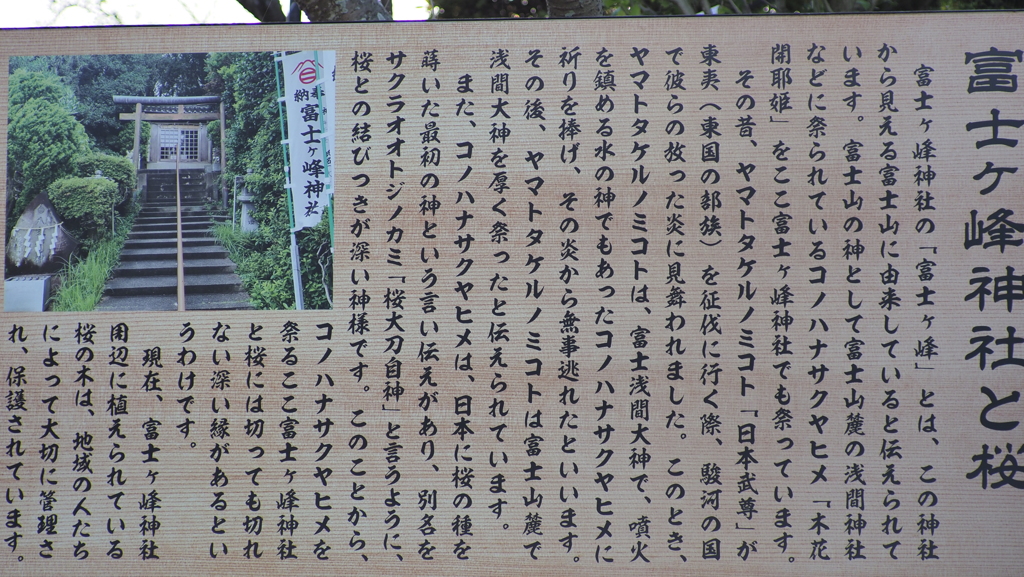 富士ヶ峰神社と桜
富士ヶ峰神社の「富士ヶ峰」とは、この神社
から見える富士山に由来していると伝えられて
います。富士山の神として富士山麓の浅間神社
などに祭られているコノハナサクヤヒメ「木花
開耶姫」をここ富士ヶ峰神社でも祭っています。
その昔、ヤマトタケルノミコト「日本武尊」が
東夷（東国の部族）を征伐に行く際、駿河の国
で彼らの放った炎に見舞われました。このとき、
ヤマトタケルノミコトは、富士浅間大神で、噴火
を鎮める水の神でもあったコノハナサクヤヒメに
祈りを捧げ、その炎から無事逃れたといいます。
その後、ヤマトタケルノミコトは富士山麓で
浅間大神を厚く祭ったと伝えられています。
また、コノハナサクヤヒメは、日本に桜の種を
蒔いた最初の神という言い伝えがあり、別名を
サクラオオトジノカミ「桜大刀自神」と言うように、
桜との結びつきが深い神様です。このことから、
コノハナサクヤヒメを
祭るここ富士ヶ峰神社
と桜には切っても切れ
ない深い縁があるとい
うわけです。
現在、富士ヶ峰神社
周辺に植えられている
桜の木は、地域の人たち
によって大切に管理さ
れ、保護されています。
奉納
富士ヶ峰神社